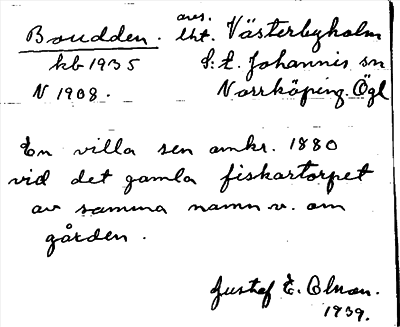 Boudden. avs.
lht. Västerbyholm
kb 1935 S:t. Johannis sn
N 1908. Norrköping. Ögl
En villa sen omkr. 1880
vid det gamla fiskartorpet
av samma namn v. om
gården.
Gustaf E. Olson.
1939.